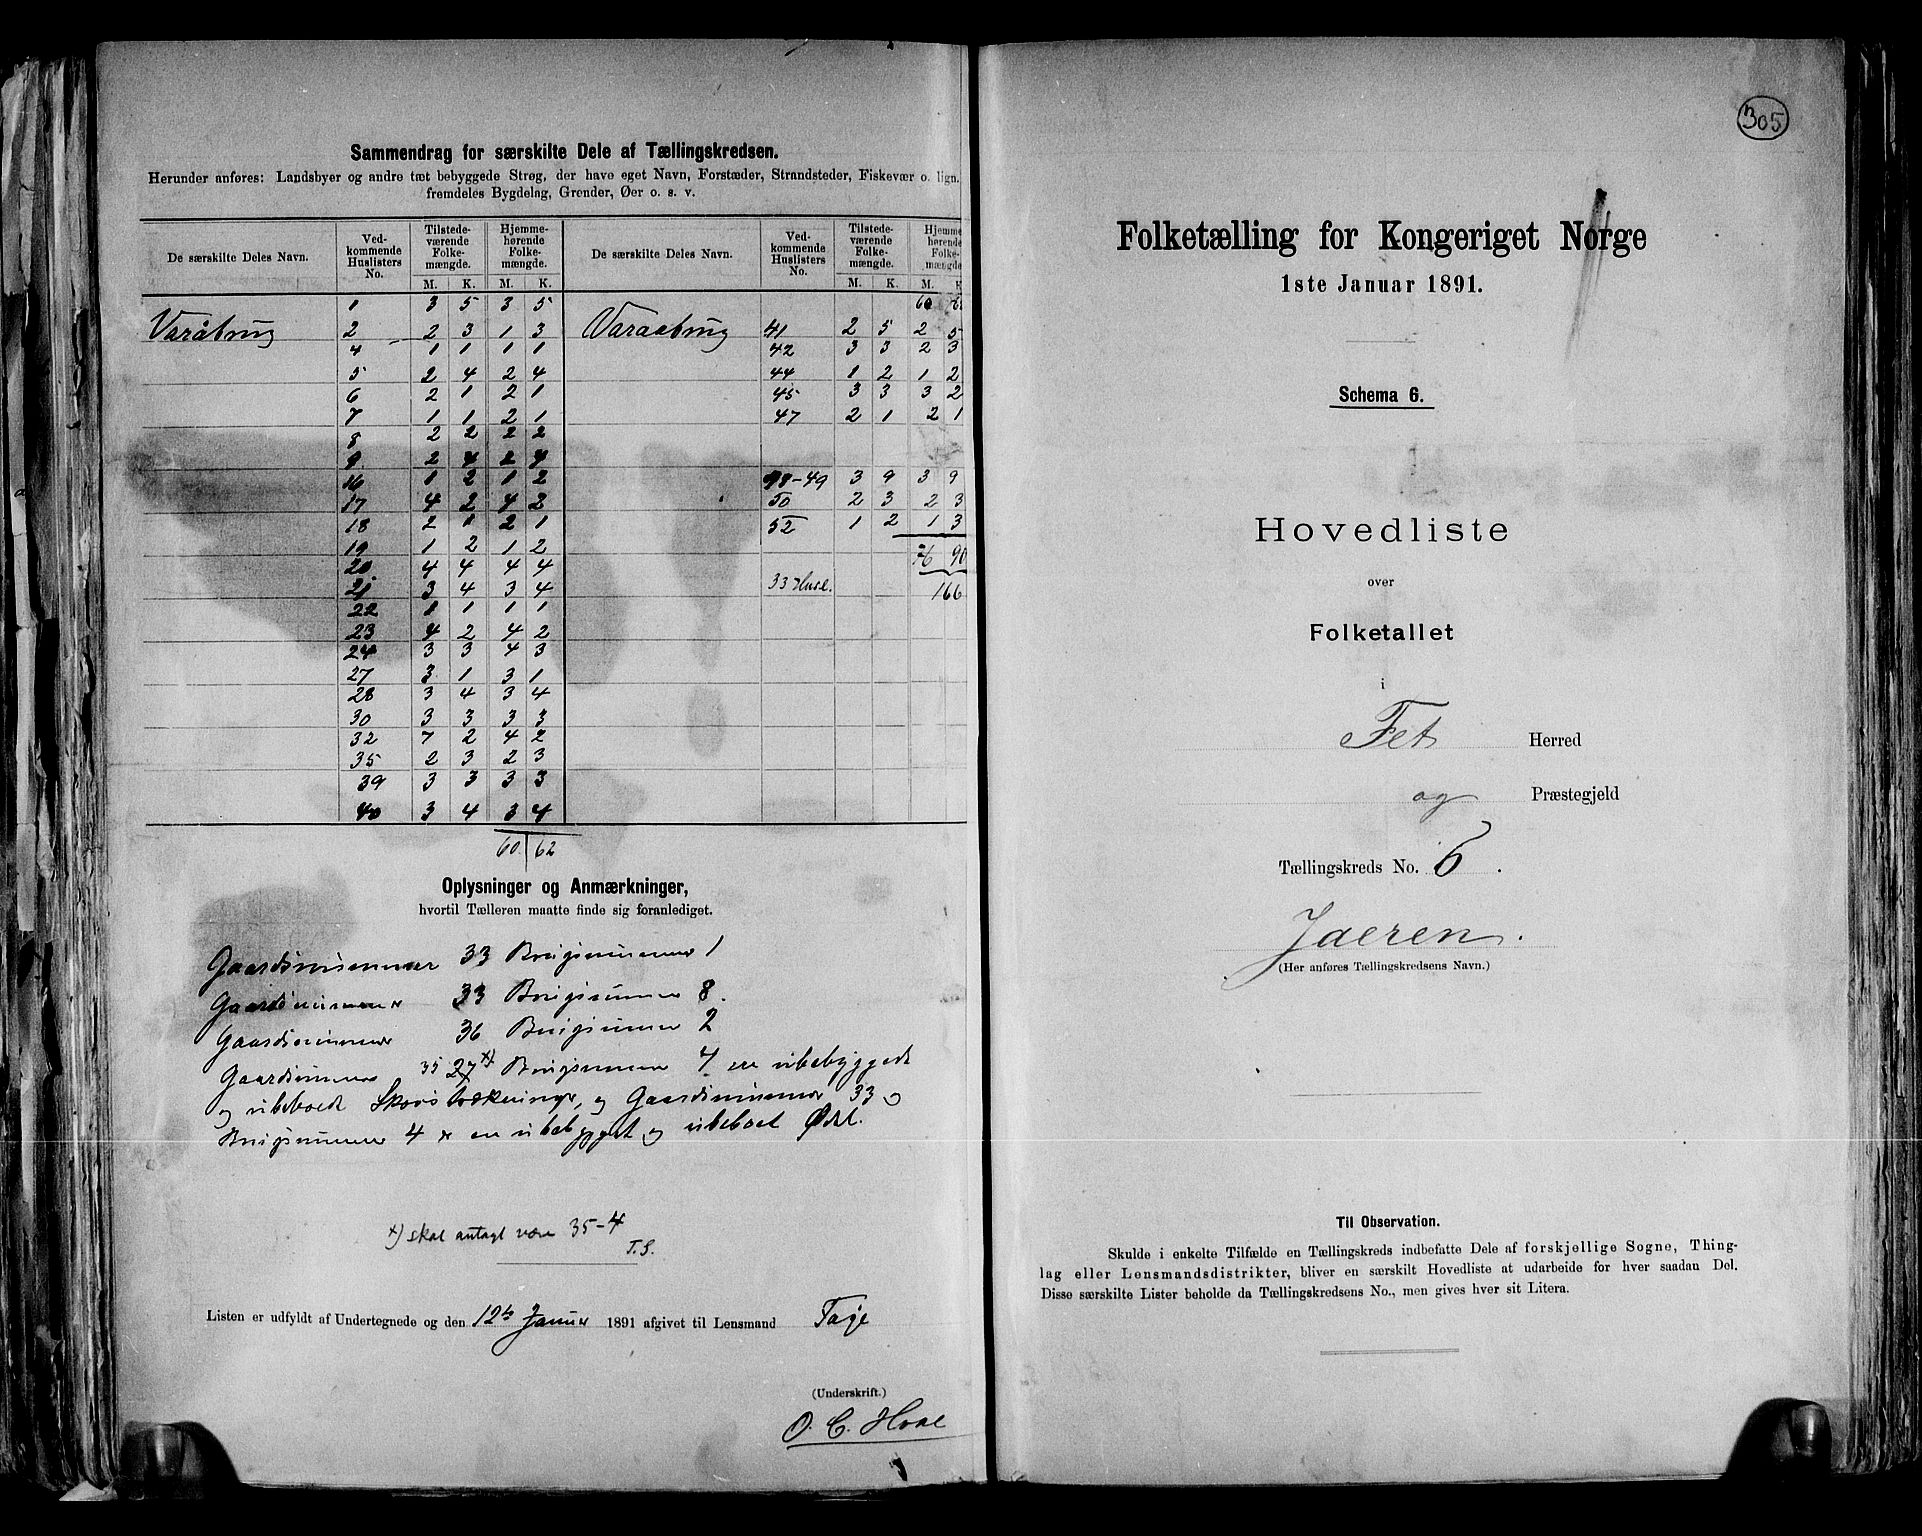 Sammendrag for særskilte Dele af Tællingskredsen.
Herunder anføres: Landsbyer og andre tæt bebyggede Strøg, der have eget Navn, Forstæder, Strandsteder, Fiskevær o. lign.
fremdeles Bygdelag, Grender, Øer o. s. v.
De særskilte Deles Navn. Ved-kommende Huslisters No. Tilstede-værende Folke-mængde. M. K. Hjemme-hørende Folke-mængde. M. K.
1 3 5 3 5
Varåbrug 2 2 3 1 3
4 1 1 1 1
5 2 4 2 4
6 2 1 2 1
7 1 1 2 1
8 2 2 2 2
9 2 4 2 4
16 1 2 1 2
17 4 2 4 2
18 2 1 2 1
19 1 2 1 2
20 4 4 4 4
21 3 4 3 4
22 1 1 1 1
23 4 2 4 2
24 3 3 4 3
27 3 1 3 1
28 3 4 3 4
30 3 3 3 3
32 7 2 4 2
35 2 3 2 3
39 3 3 3 3
40 3 4 3 4
60 62
De særskilte Deles Navn. Ved-kommende Huslisters No. Tilstede-værende Folke-mængde. M. K. Hjemme-hørende Folke-mængde M. K
60 62
Varaabrug 41 2 5 2 5
42 3 3 2 3
44 1 2 1 2
45 3 3 3 2
47 2 1 2 1
48-49 3 9 3 9
50 2 3 2 3
52 1 2 1 3
76 90
33 Huse. 166
Oplysninger og Anmærkninger,
hvortil Tælleren maatte finde sig foranlediget.
Gaardsnummer 33 Brugsnummer 1
Gaardsnummer 33 Brugsnummer 8.
Gaardsnummer 36 Brugsnummer 2
Gaardsnummer 35 27 x) Brugsnummer 4 ere ubebyggede
og ubeboede Skovstrækninger, og Gaardsnummer 33 og
Brugsnummer 4 er en ubebygget og ubeboet
x) skal antagl være 35-4
T.S.
Listen er udfyldt af Undertegnede og den 12te Januar 1891 afgivet til Lensmand
(Underskrift.)
O. C.
305
Folketælling for Kongeriget Norge
1ste Januar 1891.
Schema 6.
Hovedliste
over
Folketallet
i
Fet Herred
og Præstegjeld
Tællingskreds No. 6.
Jaeren.
(Her anføres Tællingskredsens Navn.)
Til Observation.
Skulde i enkelte Tilfælde en Tællingskreds indbefatte Dele af forskjellige Sogne, Thing-
lag eller Lensmandsdistrikter, bliver en særskilt Hovedliste at udarbeide for hver saadan Del.
Disse særskilte Lister beholde da Tællingskredsens No., men gives hver sit Litera.